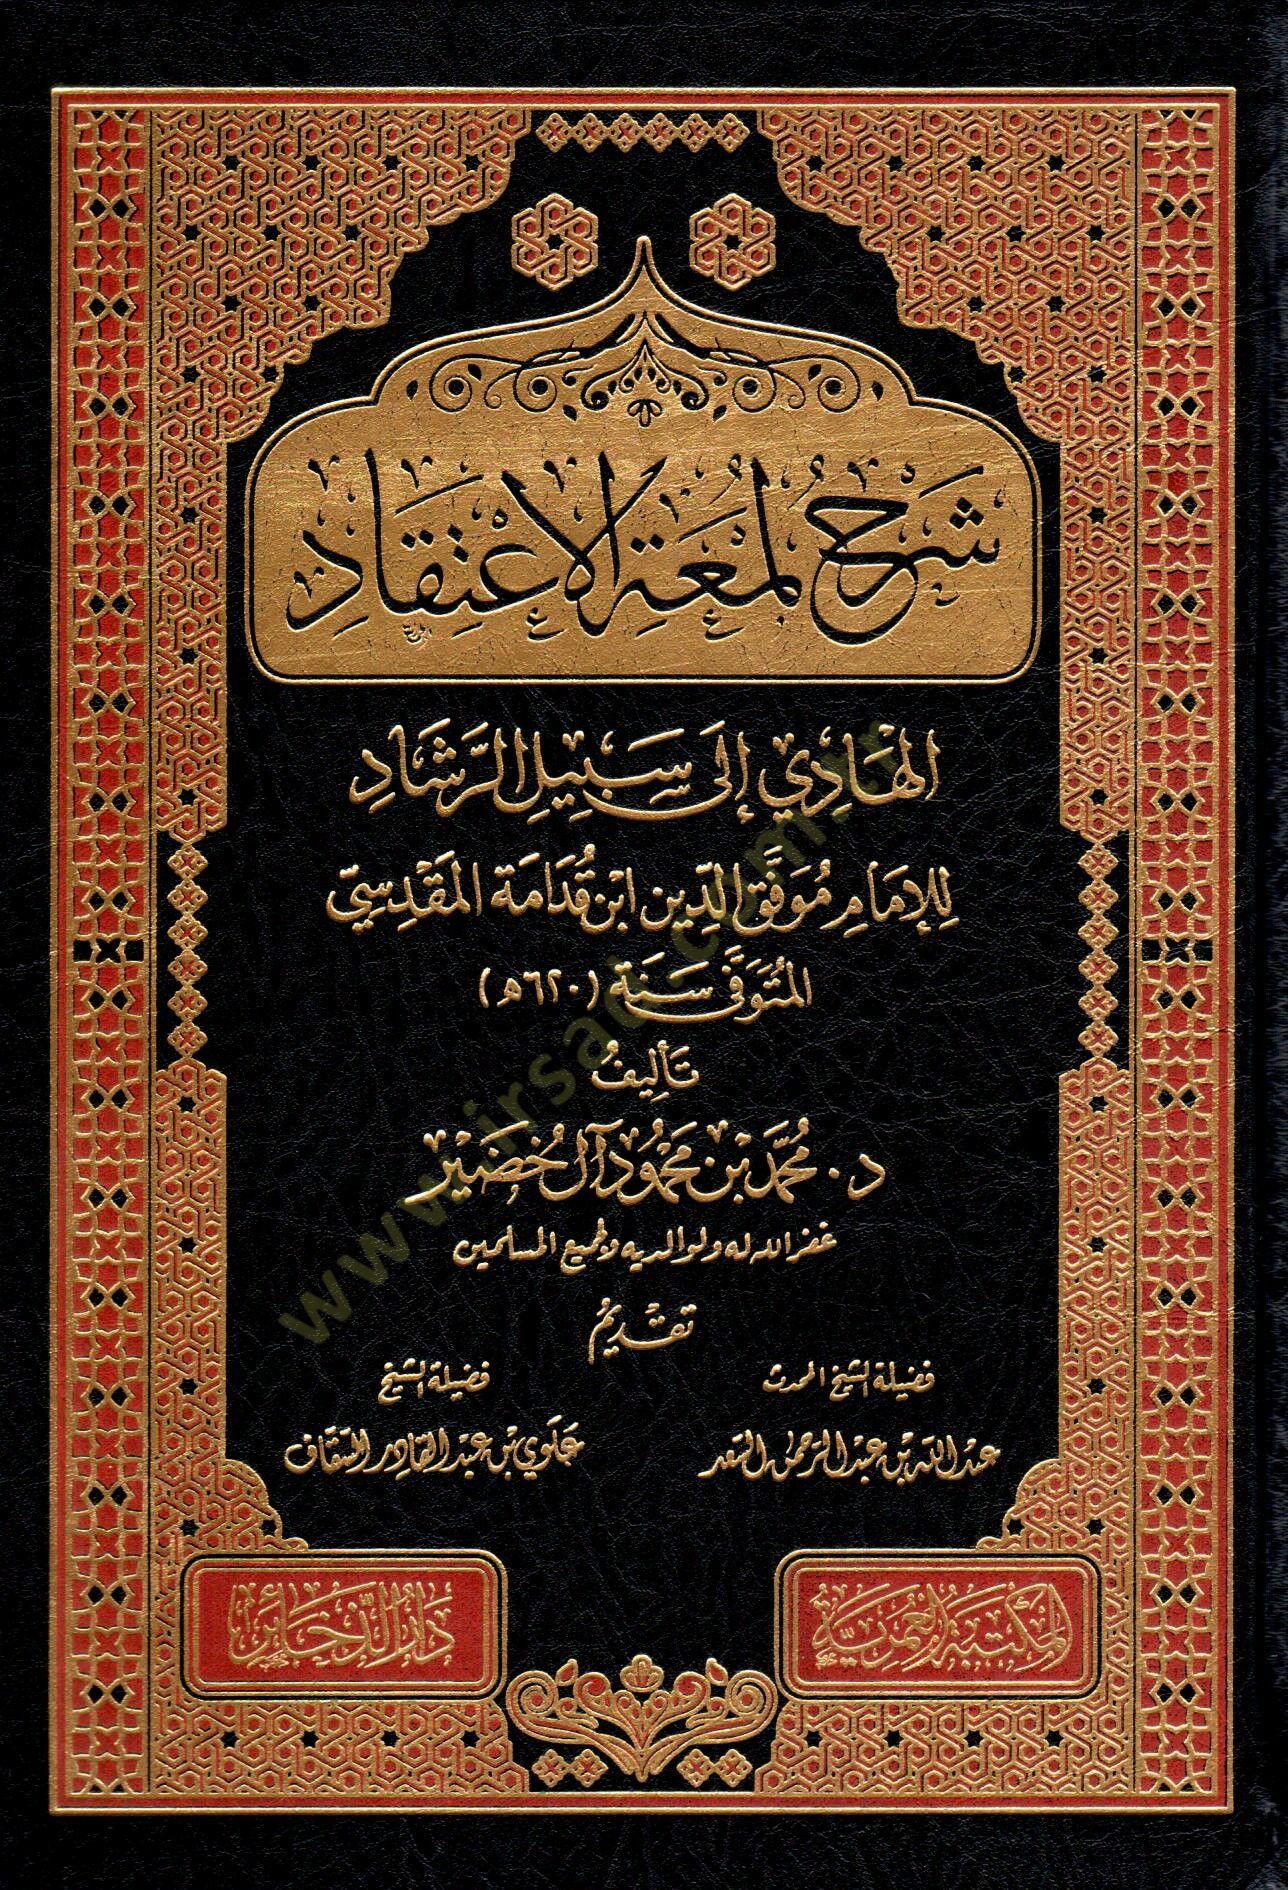 شَرْحُ لُمْعَةِ الِاعْتِقَادِ
الهَادِي إِلَى سَبِيلِ الرَّشَادِ
لِلإِمَامِ مُوَفَّقِ الدِّينِ ابْنِ قُدَامَةَ المَقْدِسِيِّ
المُتَوَفَّى سَنَةَ (٦٢٠هـ)
تَأْلِيفُ
د. مُحَمَّدُ بْنُ مَحْمُود آل خُضَيْر
غفر الله له ولوالديه ولجميع المسلمين
تَقْدِيمُ
فضيلة الشيخ المحدث
عبد الله بن عبد الرحمن السعد
فضيلة الشيخ
علوي بن عبد القادر السقاف
المكتبة العُمَرِيَّة
دار الذخائر
www.irsad.com.tr